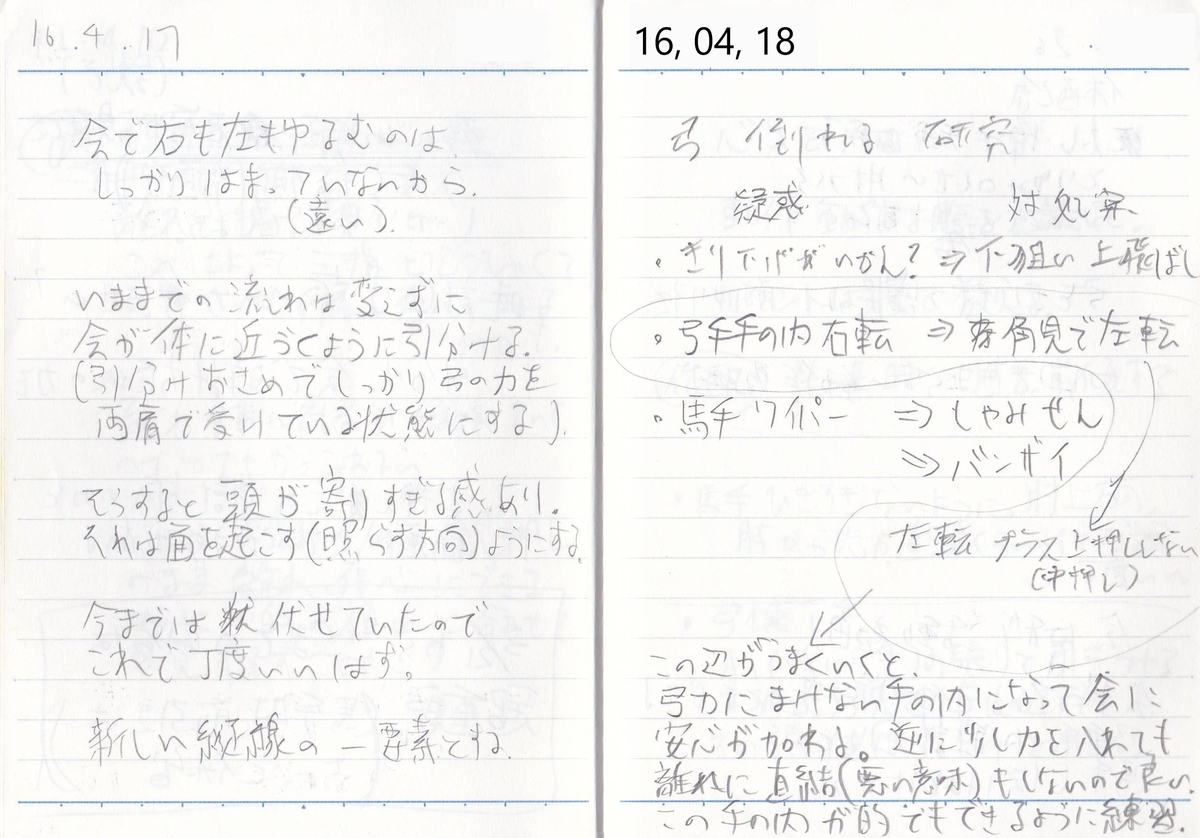 16.4.17
会で右も左もゆるむのは、
しっかりはまっていないから。
(遠い)。
いままでの流れは変えずに
会が体に近づくように引分ける。
(引分けおさめでしっかり弓の力を
両肩で受けている状態にする)。
そうすると頭が寄りすぎる感あり。
それは面を起こす(照らす方向)ようにする。
今までは伏せていたので
これで丁度いいはず。
新しい縦線の一要素とする。
16, 04, 18
弓 倒れる 研究
疑惑 対処策
・きり下げがいかん? ⇒ 下狙い 上飛ばし
・弓手手の内右転 ⇒ 角見で左転
・馬手ワイパー ⇒ しゃみせん
⇒ バンザイ
左転 プラス上押ししない
(中押し)
この辺がうまくいくと、
弓力にまけない手の内になって会に
安心が加わる。逆に少し力を入れても
離れに直結(悪い意味)もしないので良い。
この手の内が的でもできるように練習。